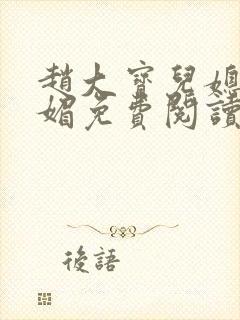 趙大寶兒媳
媚免費閱讀
後語